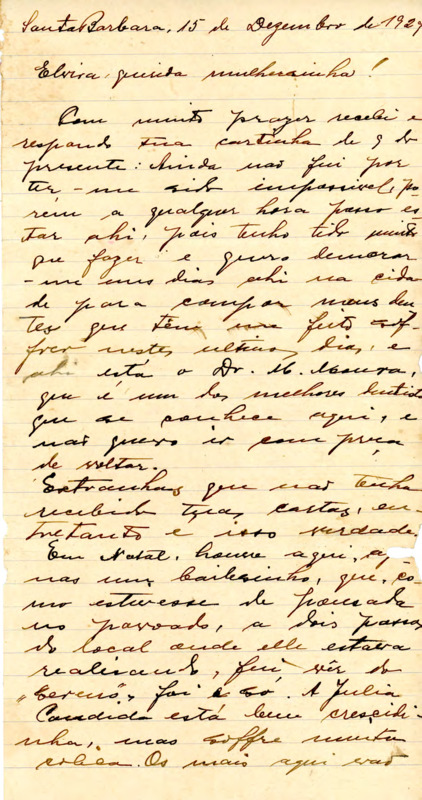 Santa Barbara, 15 de Dezembro de 1929
Elvira, querida mulhersinha!
Com muito prazer recebi e
respondo tua cartinha de 9 do
presente: Ainda não fui por
ter-me sido impossivel, po
rém a qualquer hora posso es-
tar ahi, pois tenho tido muito
que fazer e quero demorar
-me uns dias ahi na cida
de para compor meus den
tes que têm me feito sof-
frer nestes ultimos dias, e
ahi está o Dr. M. Moura,
que é um dos melhores dentista
que se conhece aqui, e
não quero ir com préça
de voltar.
Extranhas que não tenha
recebido tuas cartas, en-
tretanto é isso verdade.
Em Natal, houve aqui, ap
nas um bailesinho, que, co-
mo estivesse de pousada
no povoado, a dois passos
do local onde elle estava
realisando, fui vêr do
"sereno", foi só. A Julia
Candida está bem crescidi-
nha, mas soffre muita
colica. Os mais aqui vão